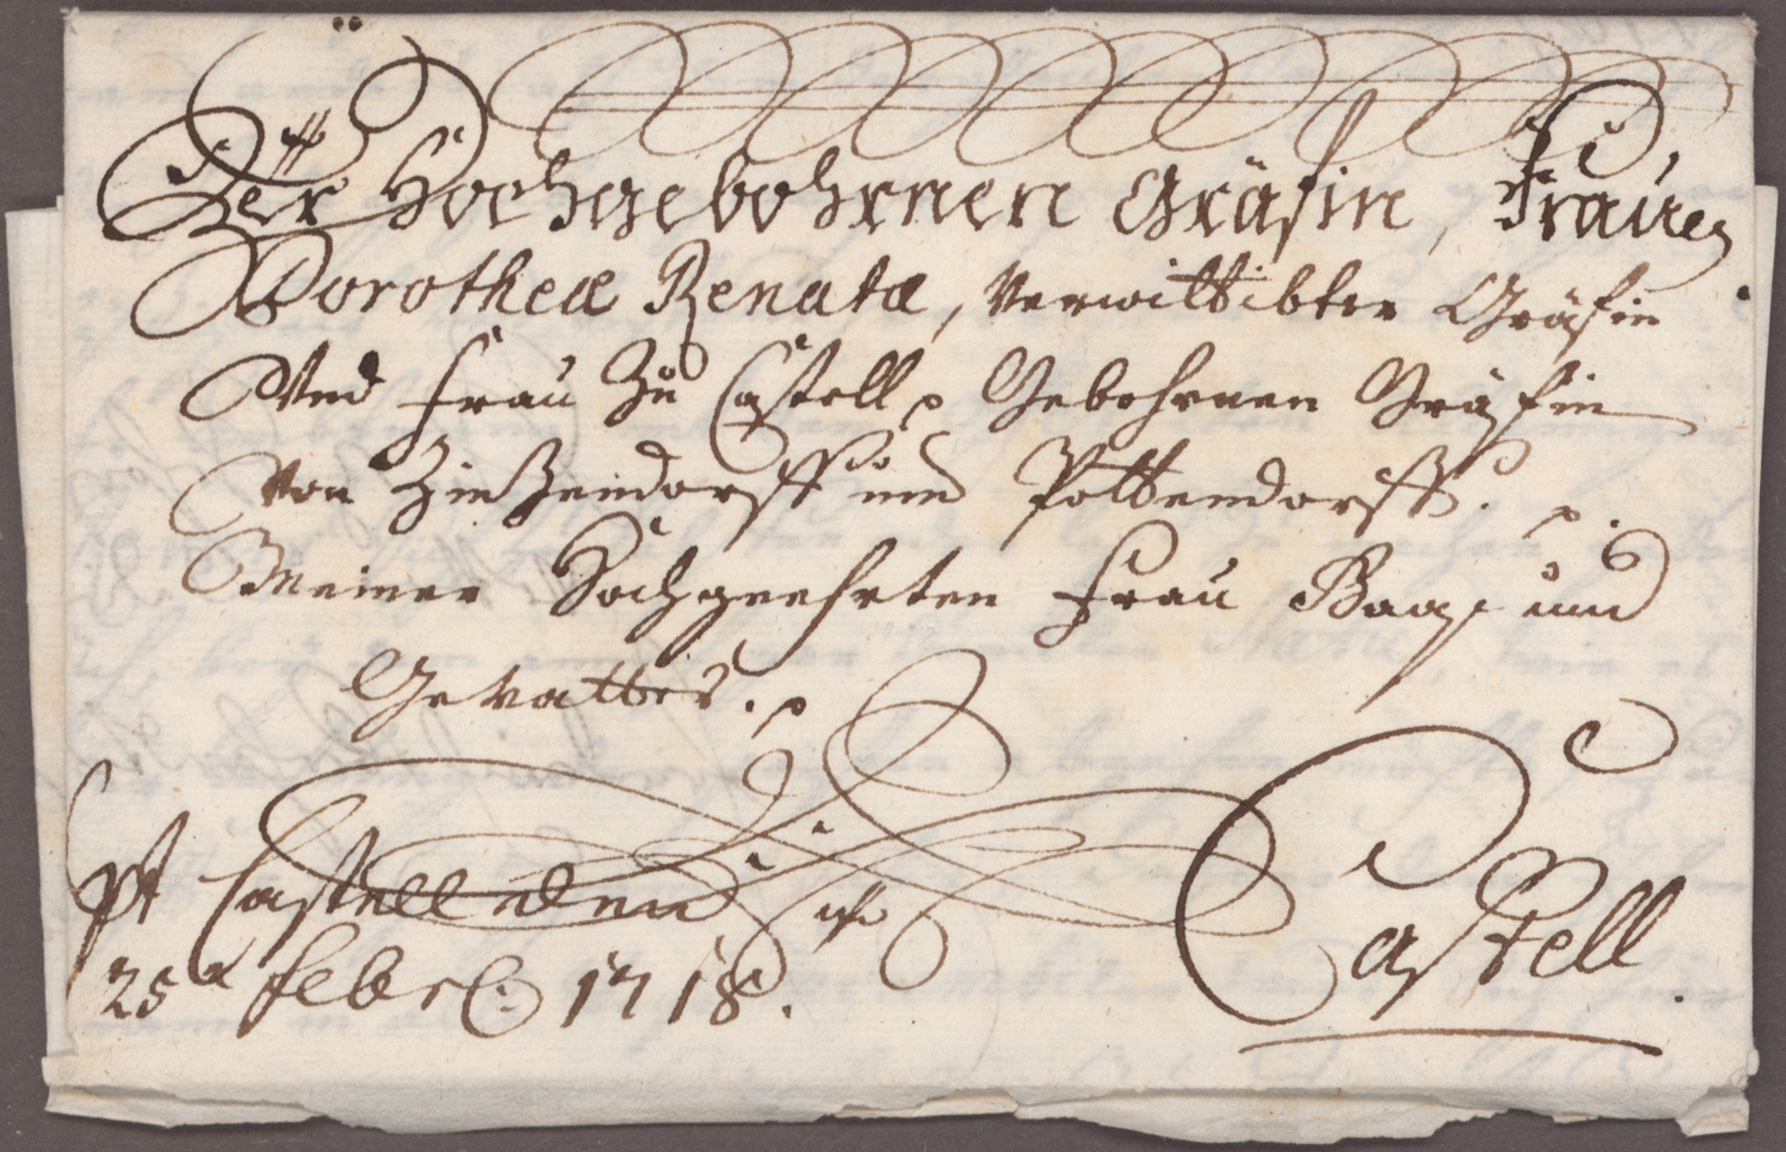 Der Hochgebohrnen Gräfin, Frauen
Dorotheæ Renatæ, Verwittibter Gräfin
Und Frau Zu Castell p Gebohrnen Gräfin
Von Zinßendorff und Pottendorff. p.
Meiner Hochgeehrten Frau Baaß und
Gevatter. p
Castell den
25 Febr: 1718.
Castell.